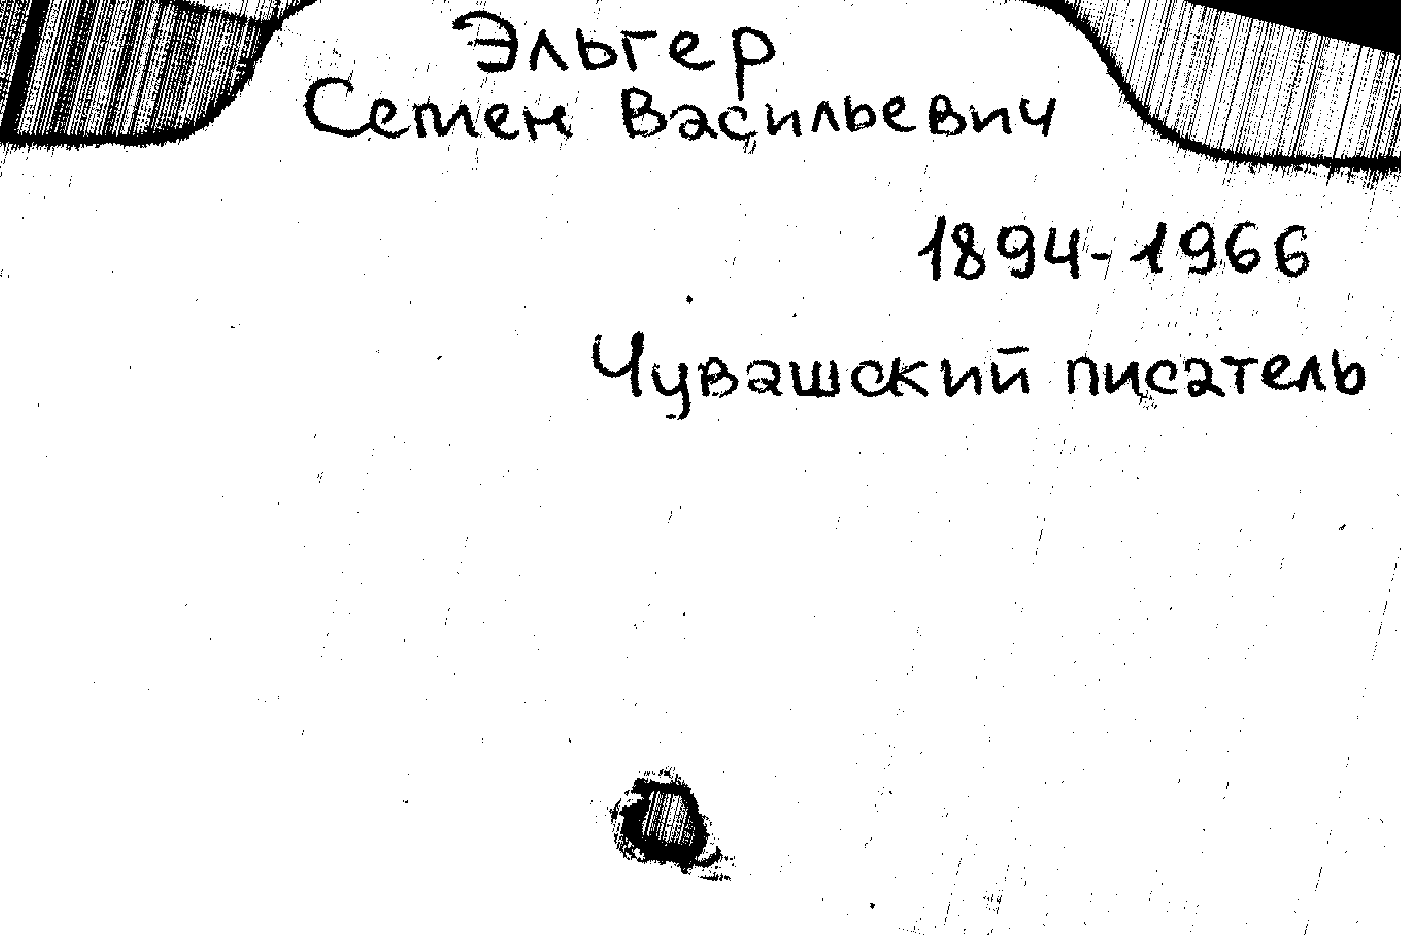 Эльгер
Семен Васильевич
1894-1966
Чувашский писатель